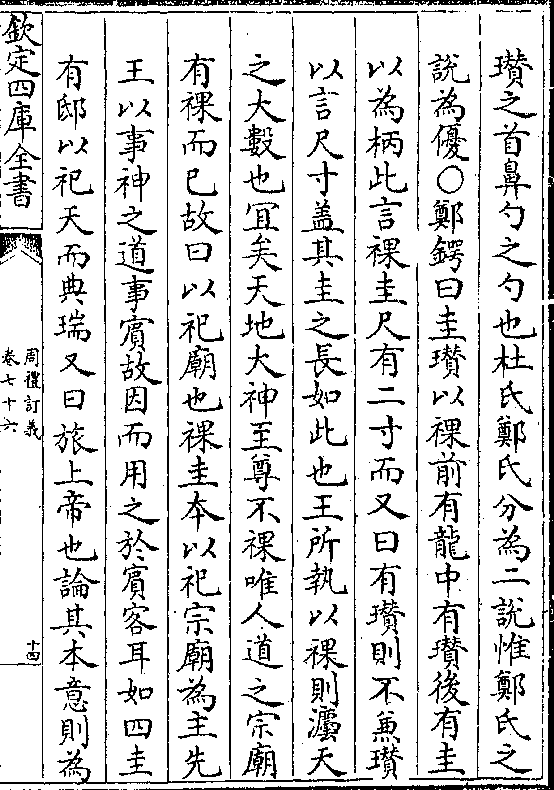 瓉之首鼻勺之勺也杜氏鄭氏分為二說惟鄭氏之
說為優○鄭鍔曰圭瓉以祼前有龍中有瓉後有圭
以為柄此言祼圭尺有二寸而又曰有瓉則不兼瓉
以言尺寸盖其圭之長如此也王所執以祼則灟天
之大數也冝矣天地大神至尊不祼唯人道之宗廟
有祼而已故曰以祀廟也祼圭本以祀宗廟為主先
王以事神之道事賓故因而用之於賓客耳如四圭
有邸以祀天而典瑞又曰旅上帝也論其本意則為
欽定四庫全書
周禮訂義
卷七十六
十四